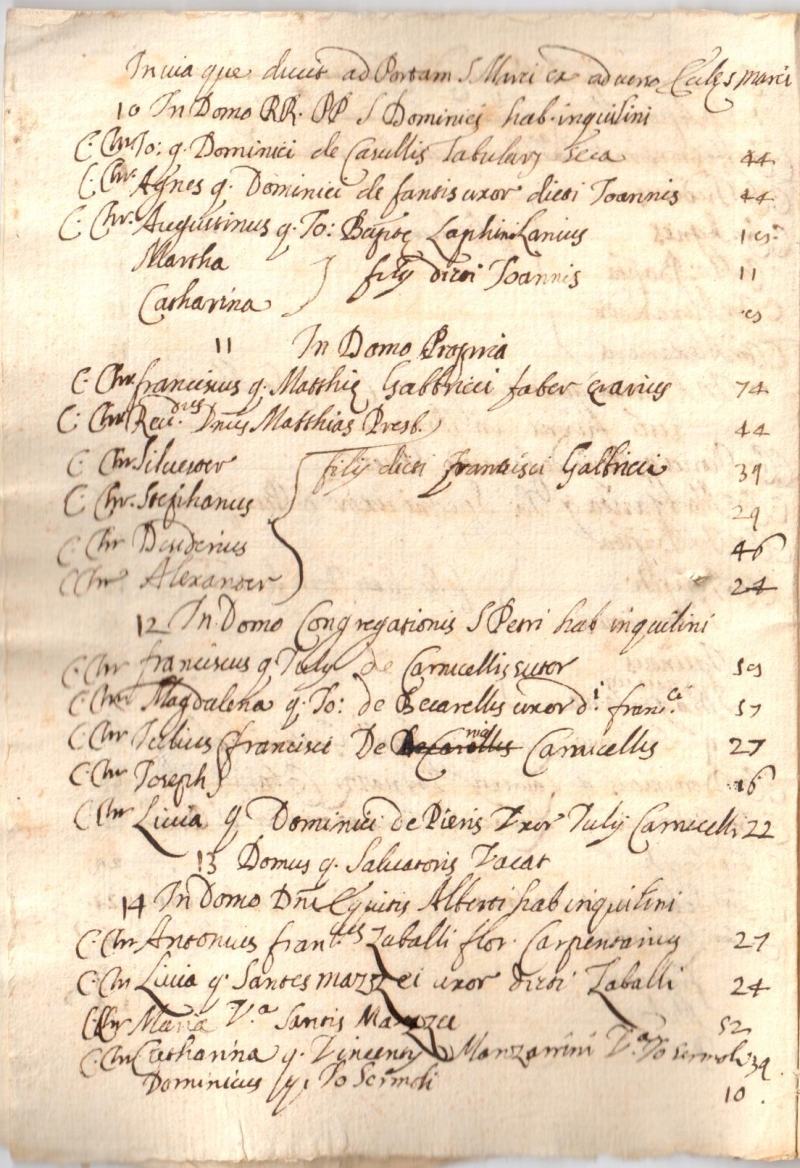 In via que ducit ad Portam S Marci ex adverso Eccle S Marci
10 In Domo RR. PP S Dominici hab. inquilini
C. Chr. Io: q. Dominici de Casullis Tabularius 44
C. Chr. Agnes q. Dominici de fantis uxor dicti Joannis 44
C. Chr. Augustinus q. Io: Baptę Laphini Lanius
Martha
filij dicti Joannis 11
Catharina
11 In Domo Propria
C. Chr. franciscus q. Matthię Gabbricci faber ęrarius 74
C. Chr. Reu.dus Dnus Matthias Presb. 44
C. Chr. Silvester filij dicti francisci Gabbricci 39
C. Chr. Stephanus 29
C. Chr Desiderius 46
C. Chr Alexander 24
12 In Domo Congregationis S Petri hab inquilini
C. Chr franciscus q Iulij de Carnicellis sutor
C. Chr Magdalena q. Io: de Becarellis uxor d.i franc.ci 57
C. Chr Iulius francisci De Carnicellis 27
C. Chr Joseph 16
C. Chr Livia q Dominici de Pieris Vxor Iulij Carnicelli 22
13 Domus q. Salvatoris Vacat
14 In Domo Dni Equitis Alberti hab inquilini
C. Chr Antonius fran.ces Zaballi flor. Carpentarius 27
C. Chr Livia q. Santes Mazzei uxor dicti Zaballi 24
C. Chr Maria V.a Santis Mazzei 52
C. Chr Catharina q. Vincentij Manzannini V.a Io Sermoli 39
Dominicus q. Io Sermoli 10